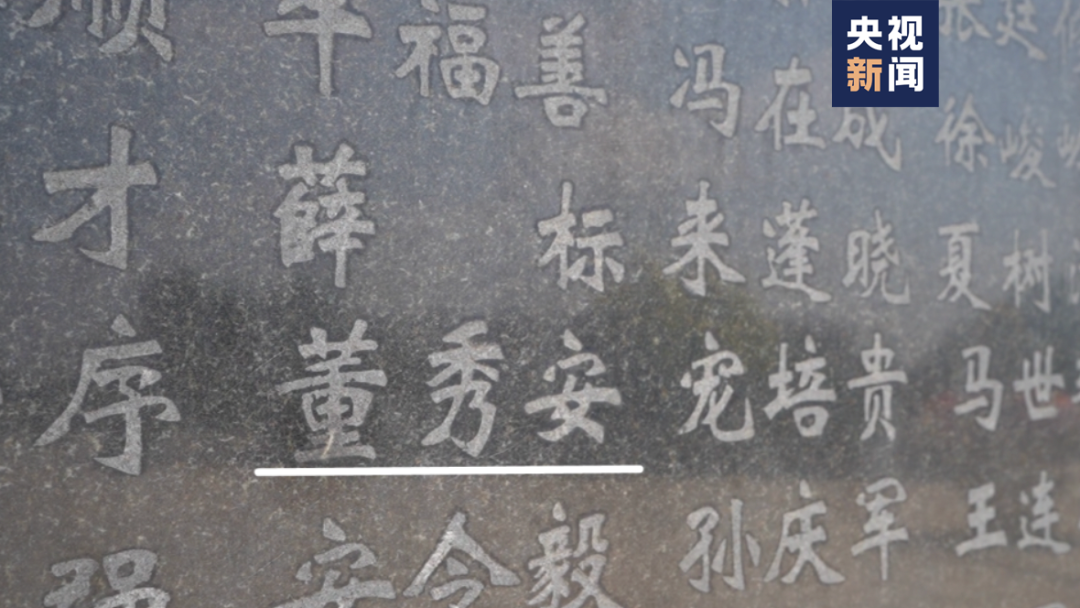 央视
新闻
福 善
冯 在成 徐峻
才 薛 标 来蓬晓 夏树
序 董秀安 宠培贵 马世
安令毅 孙庆军 王连